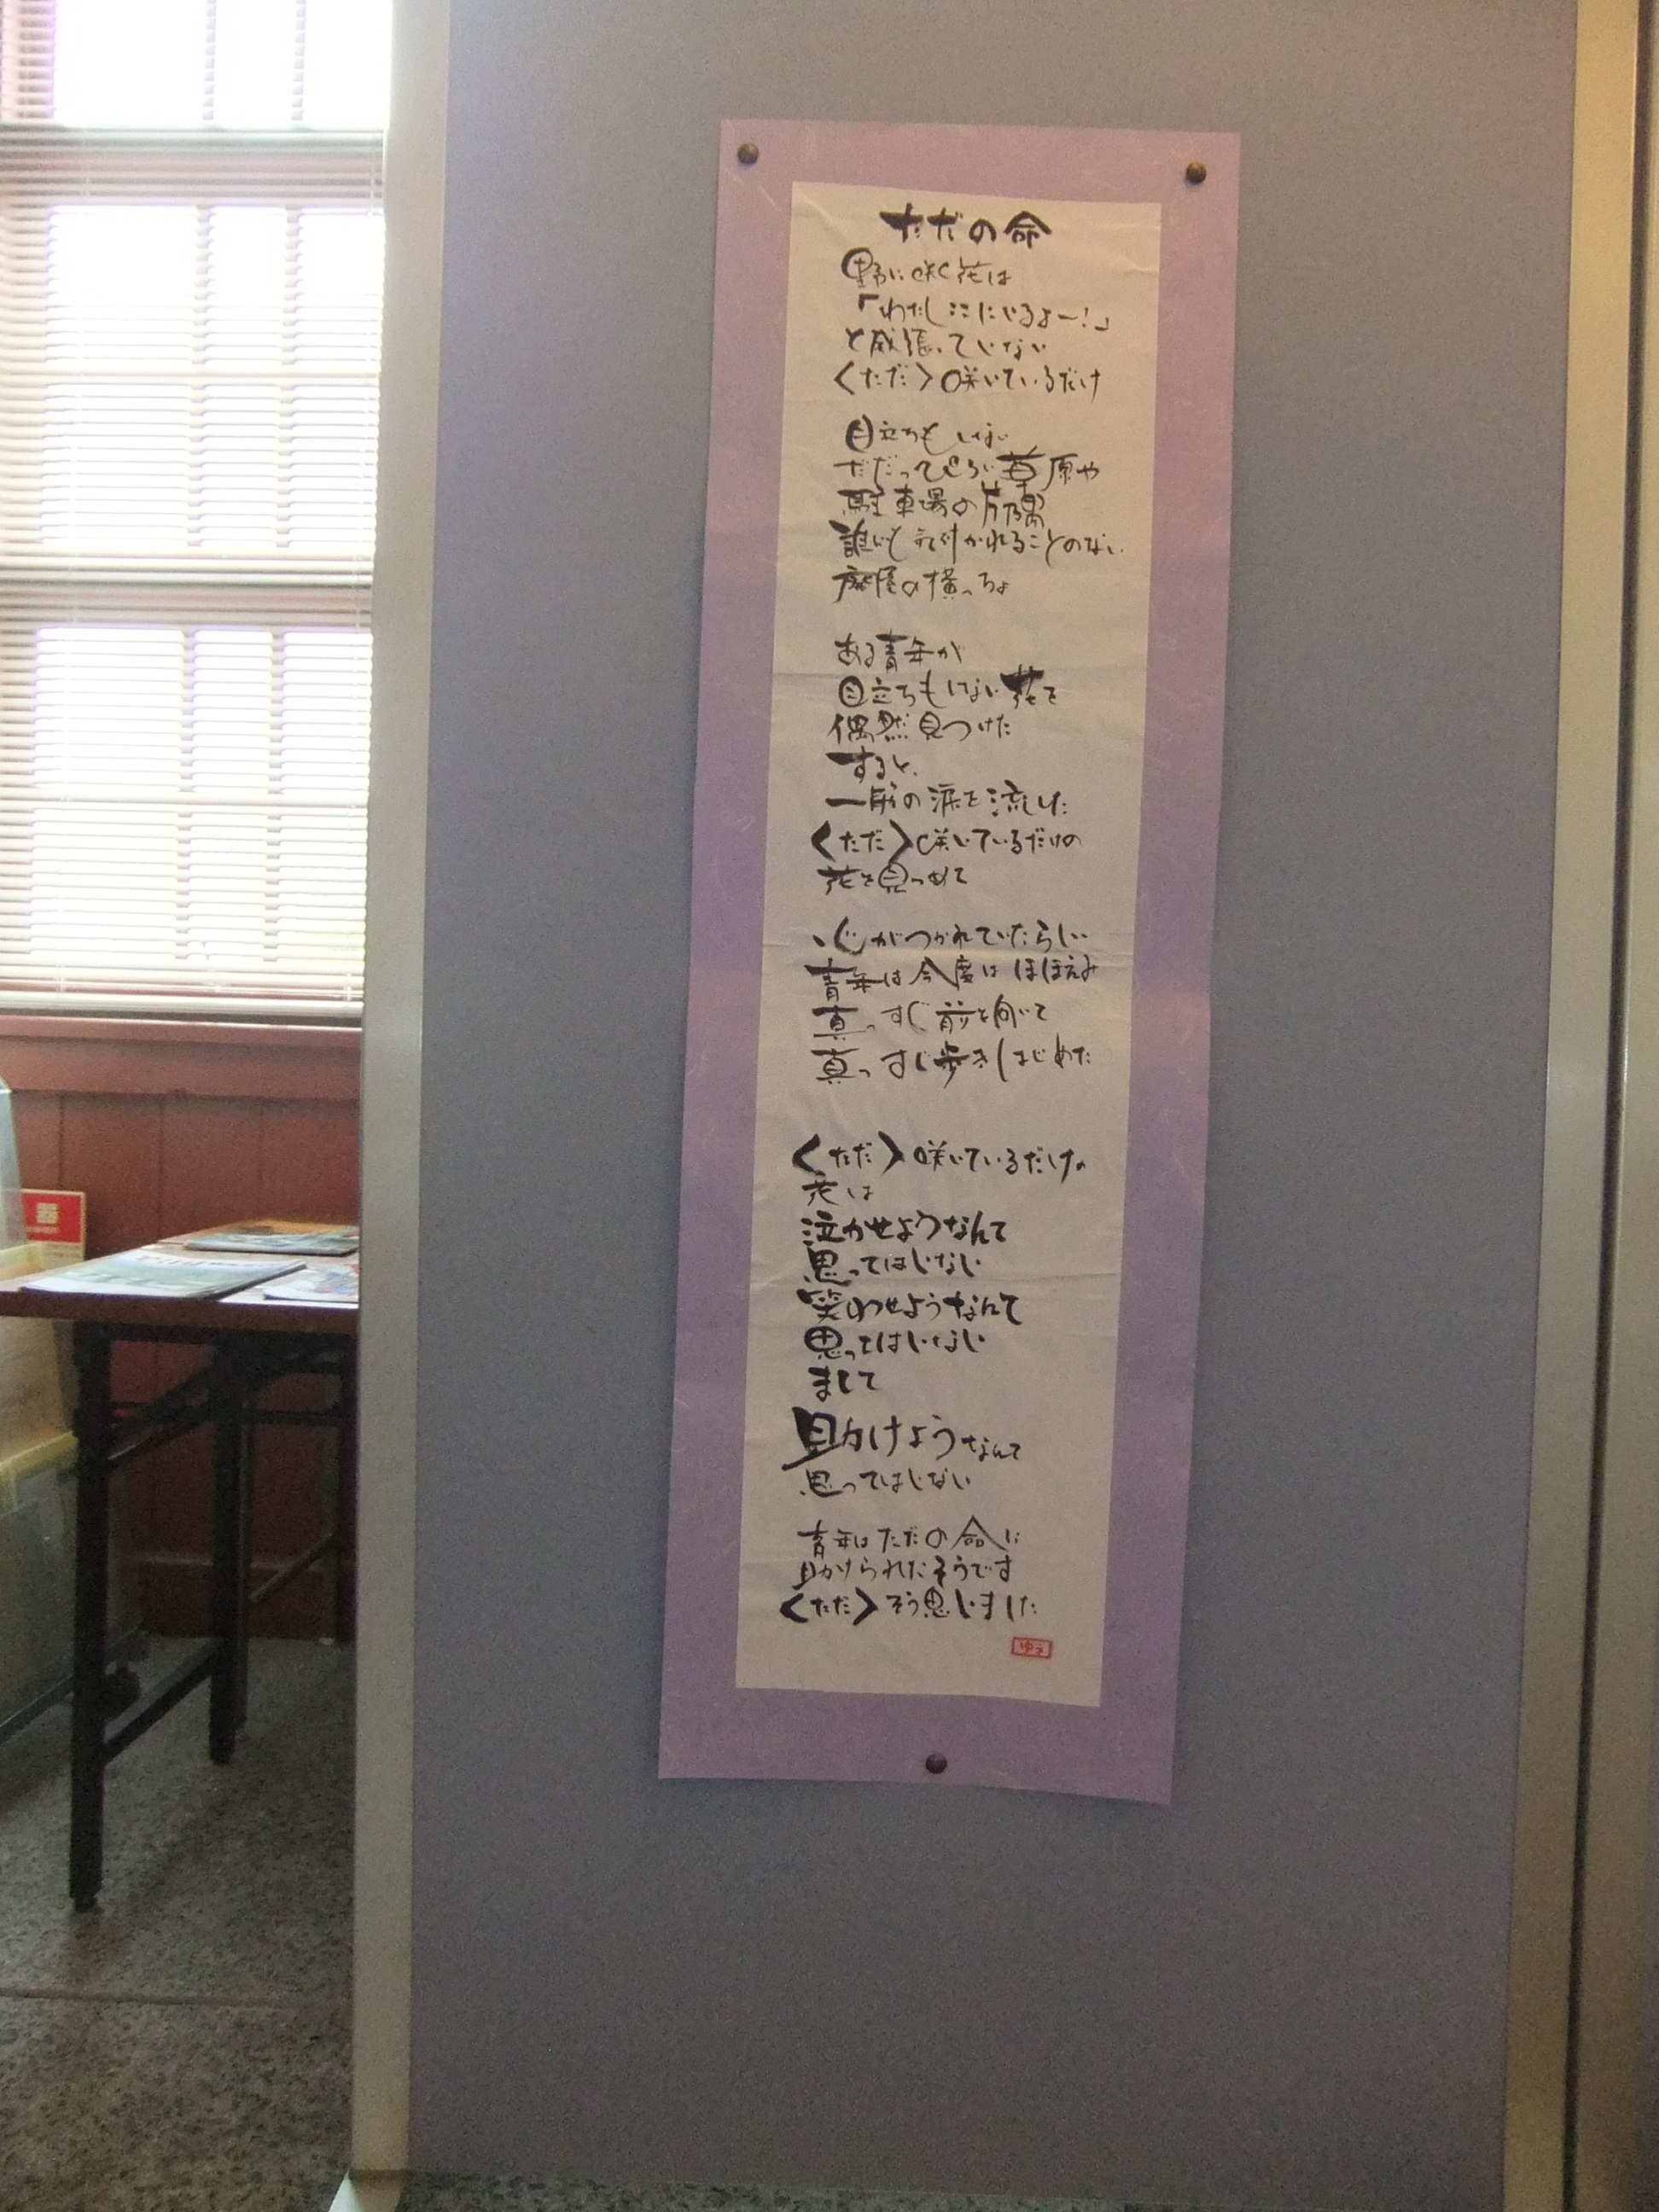 ただの命
野に咲く花は
「わたしここにいるよー!」
と威張っていない
〈ただ〉咲いているだけ
目立ちもしない
ただっぴろい草原や
駐車場の片隅
誰にも気付かれることのない
廃屋の横っちょ
ある青年が
目立ちもしない花を
偶然見つけた
すると、
一筋の涙を流した
〈ただ〉咲いているだけの
花を見つめて
心がつかれていたらしい
青年は今度はほほえみ
真っすぐ前を向いて
真っすぐ歩きはじめた
〈ただ〉咲いているだけの
花は
泣かせようなんて
思ってはいない
笑わせようなんて
思ってはいない
まして
助けようなんて
思ってはいない
青年はただの命に
助けられたそうです
〈ただ〉そう思いました
ゆえ